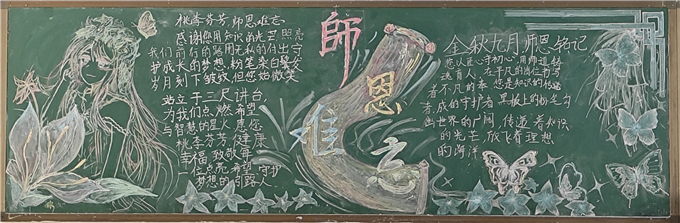 桃李芬芳,师恩难忘
感谢您用知识的光芒照亮
我们前行的路用无私的付出守
护成长的梦想,粉笔染白鬓发
岁月刻下皱纹,但您始终微笑
站立于三尺讲台,
为我们点燃希望
与智慧的星火,愿您
桃李芬芳,健康
幸福,致敬每
一位点亮希望,守护
梦想的引路人
師
恩
难
忘
金秋九月,师恩铭记
您以匠心守初心,用师道铸
魂育人,在平凡的岗位书写
者不凡的
您是知识的传递
者,成的守护者
出世界的广阔,传递着知识
的光芒,放飞着理想
的海洋